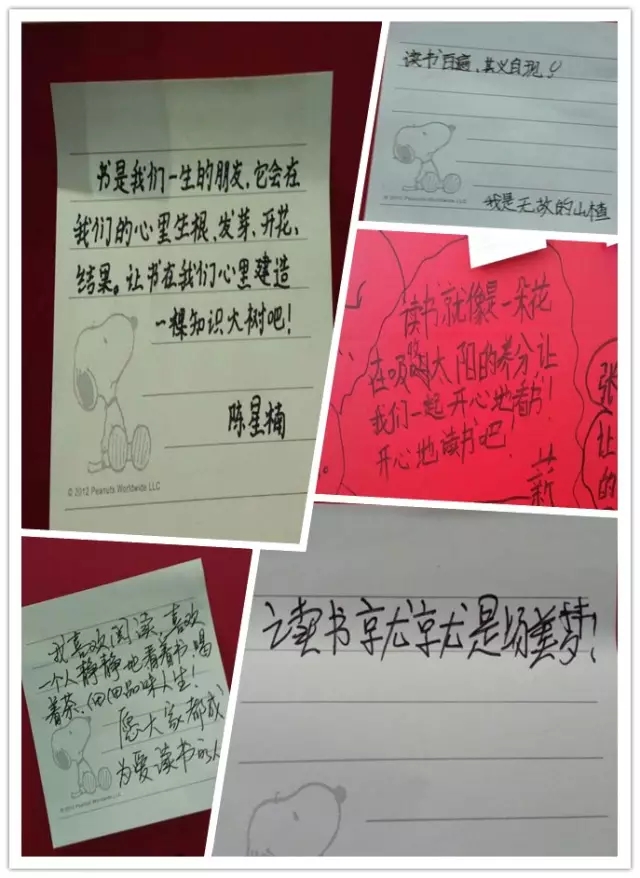 书是我们一生的朋友,它会在
我们的心里生根、发芽、开花、
结果。让书在我们心里建造
一棵知识大树吧!
陈星楠
© 2012 Peanuts Worldwide LLC
读书百遍,其义自现
© 2012 Peanuts Worldwide LLC
我是无敌的山楂
读书就像是一朵花
在吸收太阳的养分让
我们一起开心地看书!
开心地读书吧!
张
让
的
我喜欢阅读,喜欢
一个人静静地看着书喝
着茶、细细品味人生!
愿大家都成
为爱读书的人
© 2012 Peanuts Worldwide LLC
读书就就是场美梦!